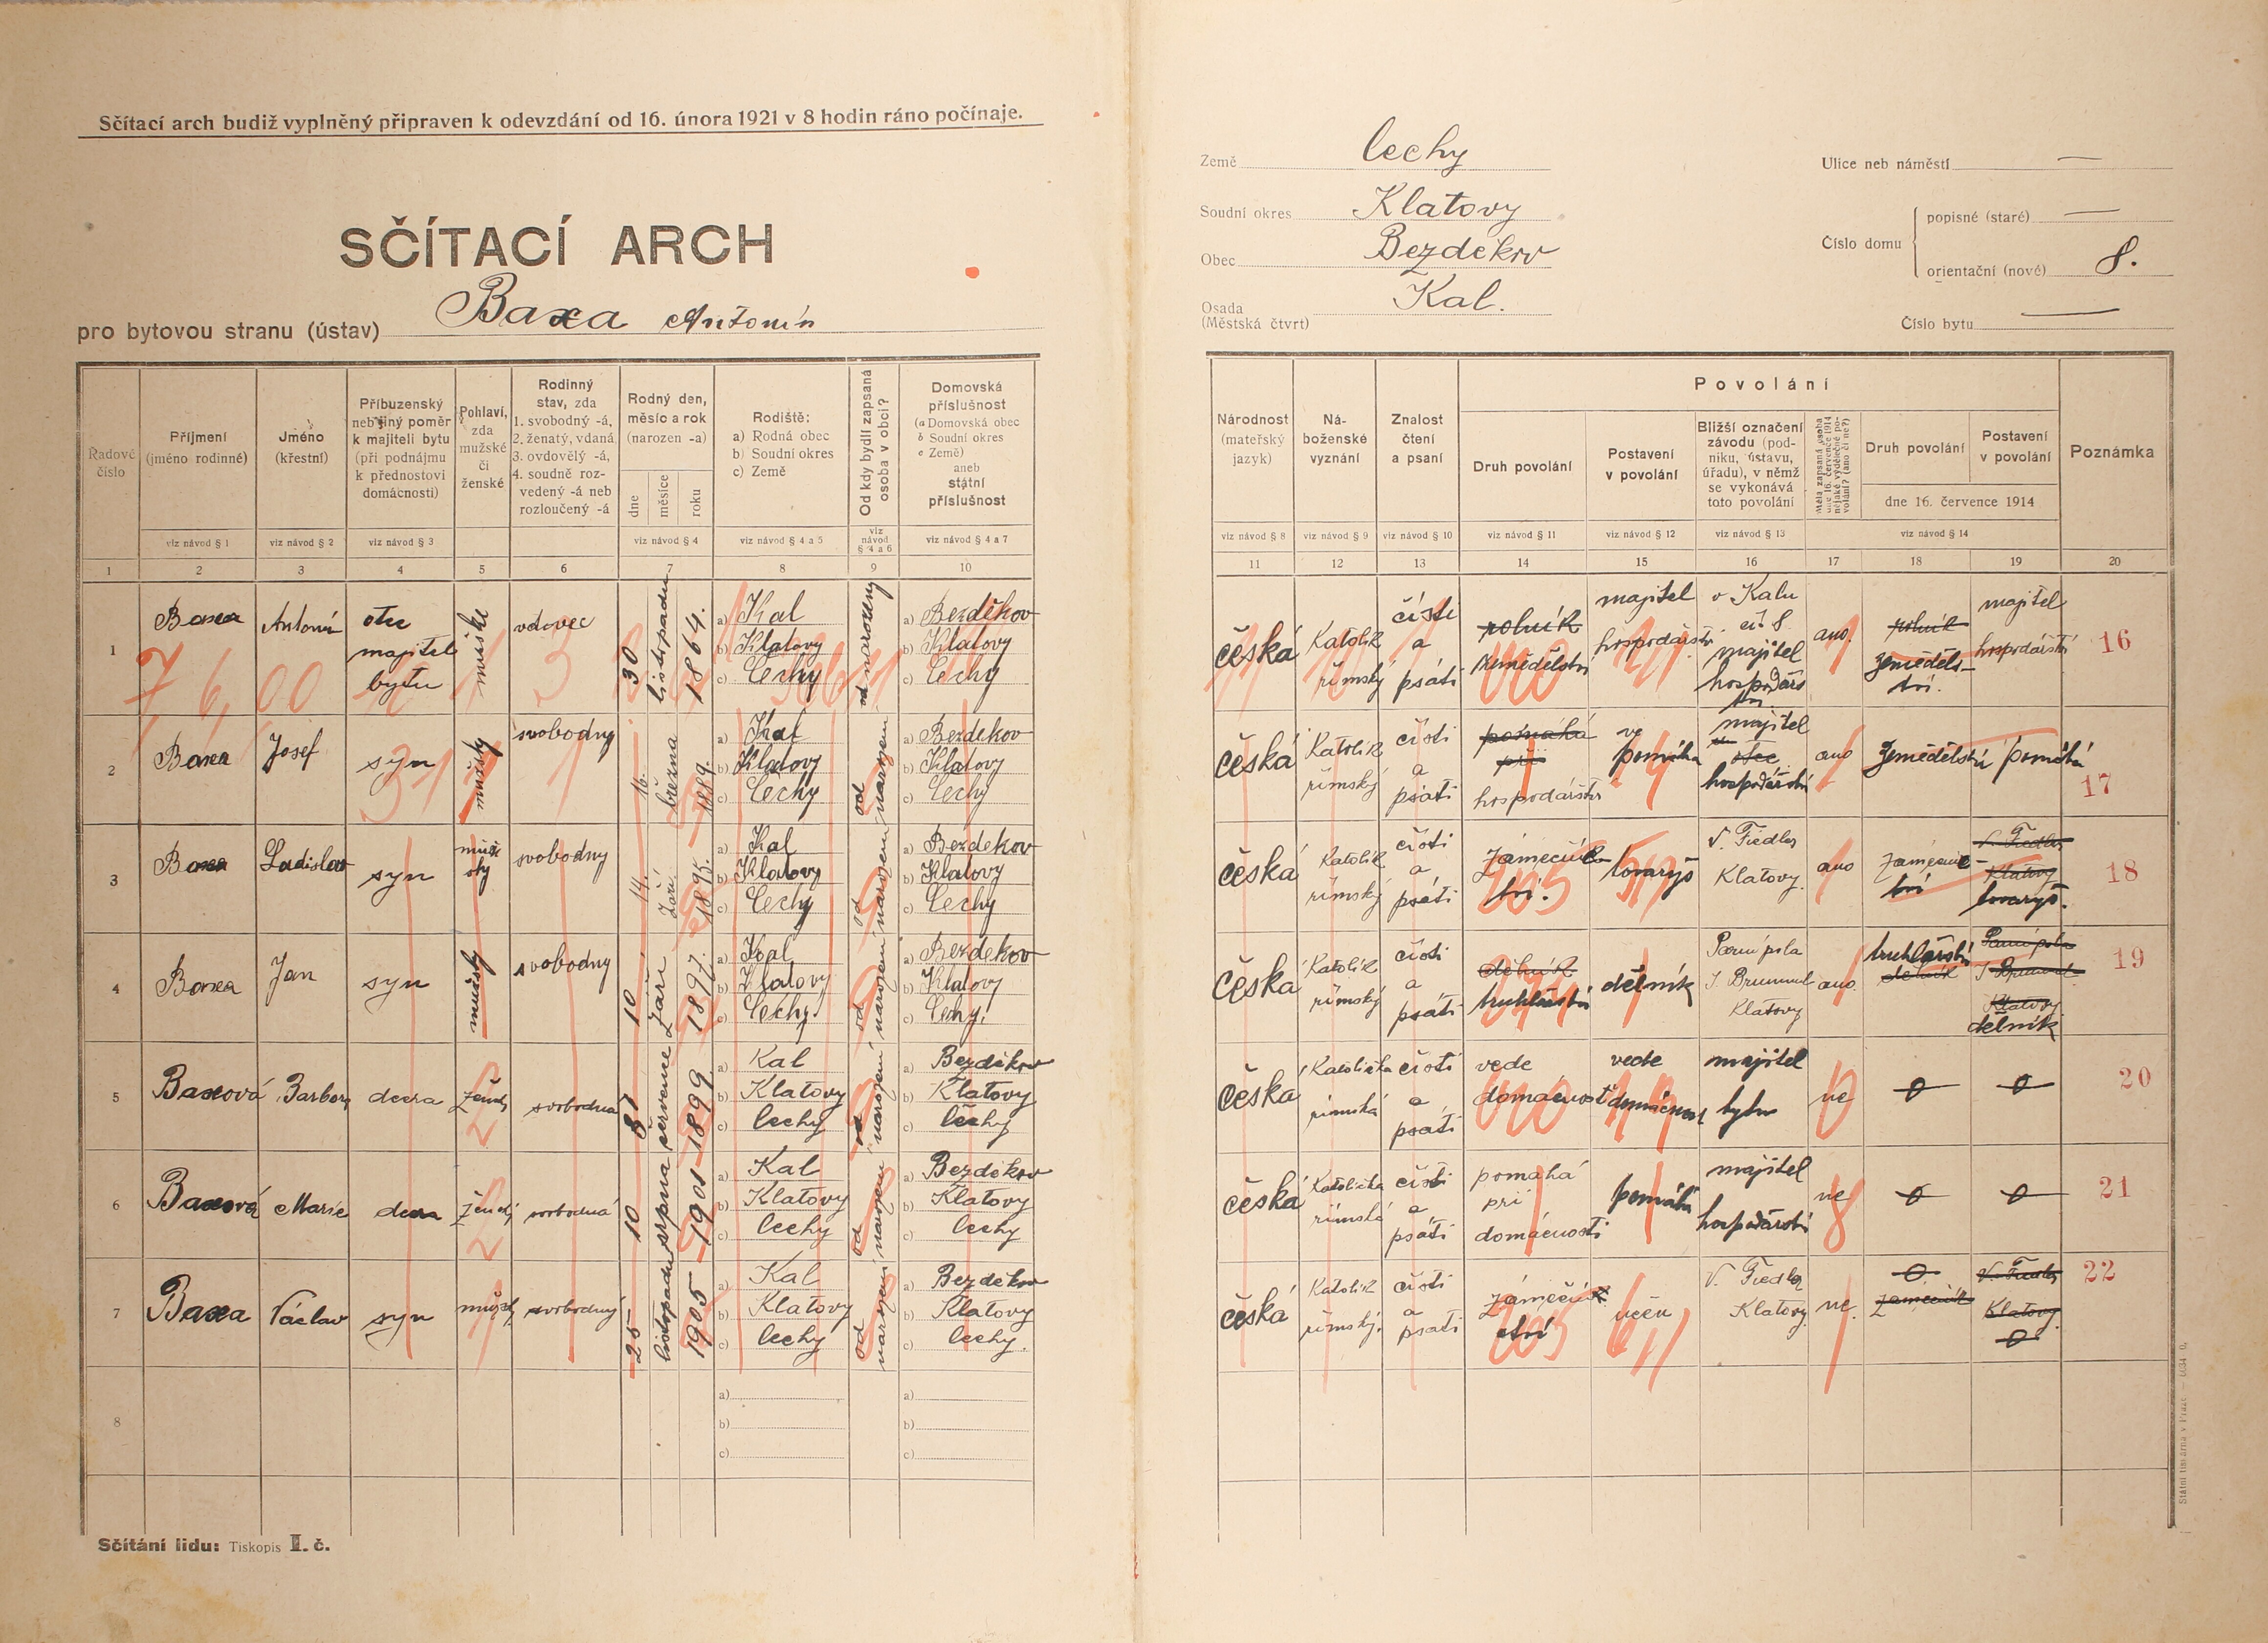 Sčítací arch budiž vyplněný připraven k odevzdání od 16. února 1921 v 8 hodin ráno počínaje.
SČÍTACÍ ARCH
pro bytovou stranu (ústav) Baxa Antonín
Země Čechy
Soudní okres Klatovy
Obec Bezděkov
Osada Kal.
(Městská čtvrt)
Ulice neb náměstí —
Číslo domu
popisné (staré) —
orientační (nové) 8.
Číslo bytu —
Řadové číslo
Příjmení (jméno rodinné)
Jméno (křestní)
Příbuzenský neb jiný poměr k majiteli bytu (při podnájmu k přednostovi domácnosti)
Pohlaví, zda mužské či ženské
Rodinný stav, zda 1. svobodný -á, 2. ženatý, vdaná, 3. ovdovělý -á, 4. soudně rozvedený -á neb rozloučený -á
Rodný den, měsíc a rok (narozen -a)
dne měsíce roku
Rodiště: a) Rodná obec b) Soudní okres c) Země
Od kdy bydlí zapsaná osoba v obci?
Domovská příslušnost (a Domovská obec b Soudní okres c Země) aneb státní příslušnost
viz návod § 1
viz návod § 2
viz návod § 3
viz návod § 4
viz návod § 4 a 5
viz návod § 4 a 6
viz návod § 4 a 7
1 2 3 4 5 6 7 8 9 10
Národnost (mateřský jazyk)
Náboženské vyznání
Znalost čtení a psaní
Povolání
Druh povolání
Postavení v povolání
Bližší označení závodu (podniku, ústavu, úřadu), v němž se vykonává toto povolání
Měla zapsaná osoba dne 16. července 1914 nějaké výdělečné povolání? (ano či ne?)
Druh povolání
Postavení v povolání
dne 16. července 1914
Poznámka
viz návod § 8
viz návod § 9
viz návod § 10
viz návod § 11
viz návod § 12
viz návod § 13
viz návod § 14
11 12 13 14 15 16 17 18 19 20
1 Baxa Antonín otec majitel bytu mužské vdovec 30 listopadu 1864. a) Kal b) Klatovy c) Čechy od narození a) Bezděkov b) Klatovy c) Čechy
česká Katolík římský čísti a psáti rolník zemědělství majitel hospodářství v Kalu čí. 8 majitel hospodářství ano. rolník zemědělství. majitel hospodářství 16
2 Baxa Josef syn mužský svobodný 16. března 1889. a) Kal b) Klatovy c) Čechy od narození a) Bezděkov b) Klatovy c) Čechy
česká Katolík římský čísti a psáti pomáhá při hospodářství pomáhá majitel otec hospodářství ano zemědělství pomáhá 17
3 Baxa Ladislav syn mužský svobodný 14. Září 1895. a) Kal b) Klatovy c) Čechy od narození a) Bezděkov b) Klatovy c) Čechy
česká Katolík římský čísti a psáti zámečnictví. tovaryš V. Fiedler Klatovy. ano zámečnictví V. Fiedler Klatovy tovaryš. 18
4 Baxa Jan syn mužský svobodný 10 Září 1897. a) Kal b) Klatovy c) Čechy od narození a) Bezděkov b) Klatovy c) Čechy
česká Katolík římský čísti a psáti dělník truhlářství dělník Parní pila J. Brummel Klatovy ano. truhlářství dělník Parní pila J. Brummel Klatovy dělník 19
5 Baxová Barbora dcera žensk. svobodná července 1899 a) Kal b) Klatovy c) Čechy od narození a) Bezděkov b) Klatovy c) Čechy
česká Katolička římská čísti a psáti vede domácnost vede domácnost majitel bytu ne 0 0 20
6 Baxová Marie dcera žensk. svobodná 10 srpna 1901 a) Kal b) Klatovy c) Čechy od narození a) Bezděkov b) Klatovy c) Čechy
česká Katolička římská čísti a psáti pomáhá při domácnosti pomáhá majitel hospodářství ne 0 0 21
7 Baxa Václav syn mužský svobodný 25 listopadu 1905 a) Kal b) Klatovy c) Čechy od narození a) Bezděkov b) Klatovy c) Čechy.
česká Katolík římský. čísti a psáti zámečnictví učeň V. Fiedler Klatovy ne. 0 zámečník V. Fiedler Klatovy. 0 22
8 a) b) c) a) b) c)
Sčítání lidu: Tiskopis I. č.